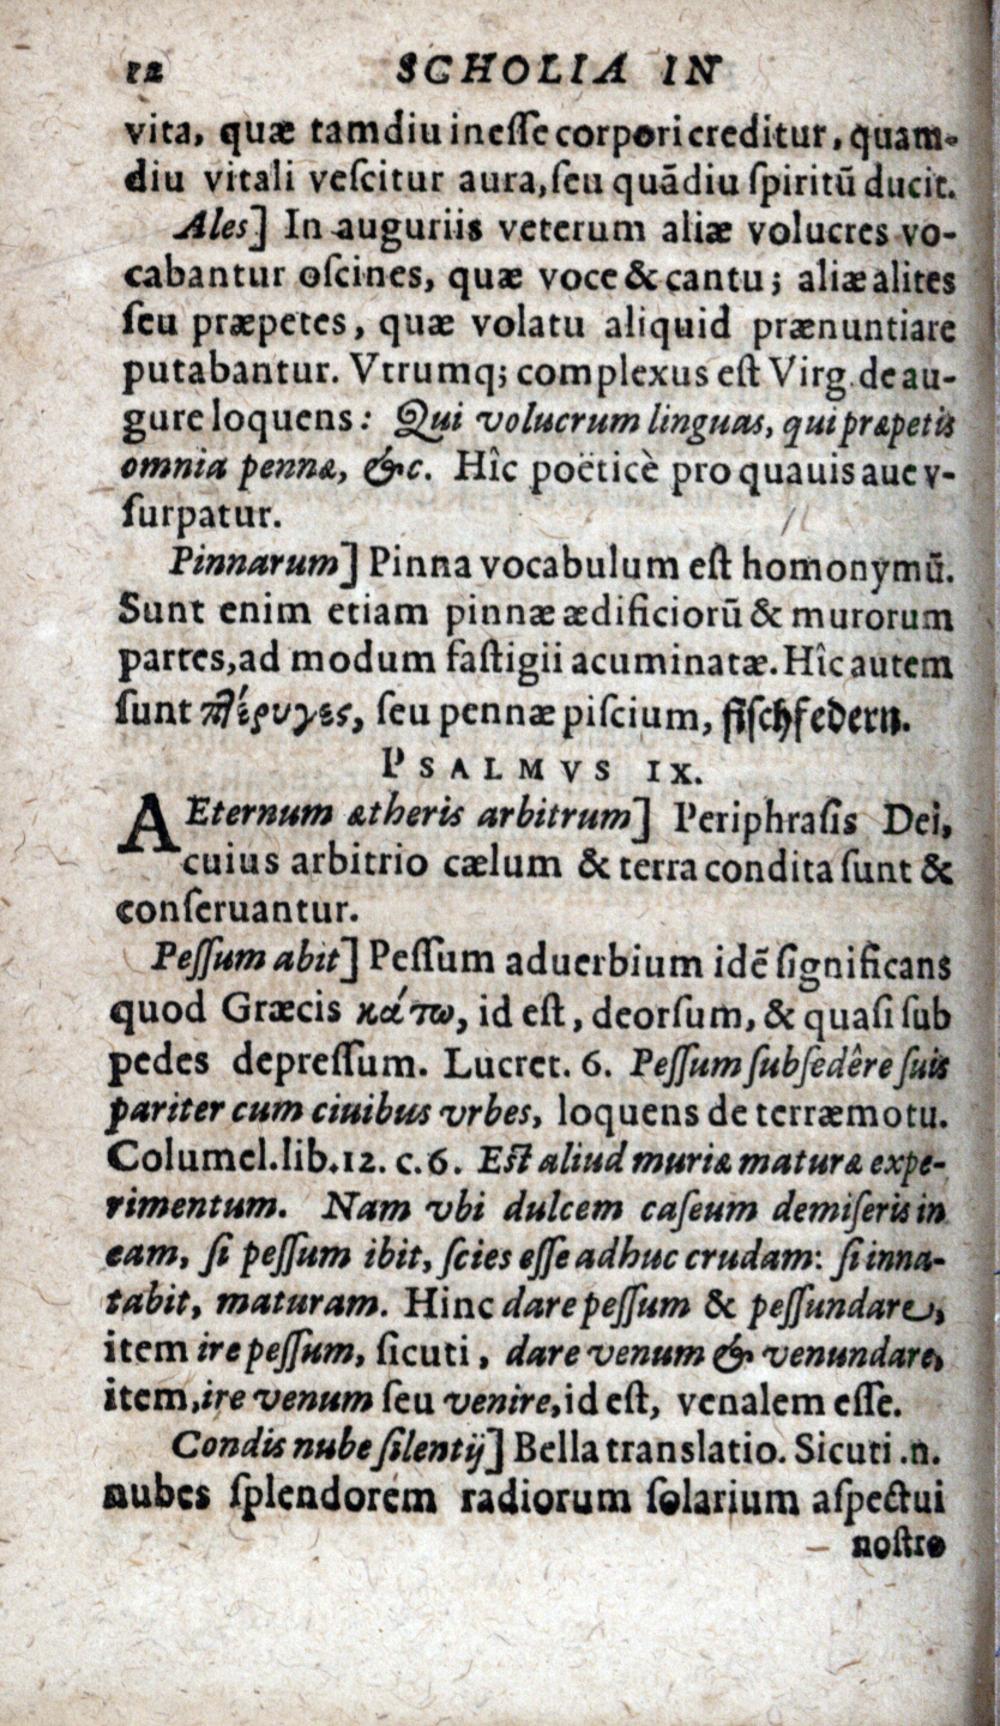 12 SCHOLIA IN
vita, quæ tamdiu ineſſe corpori creditur, quam-
diu vitali veſcitur aura, ſeu quãdiu ſpiritũ ducit.
Ales] In auguriis veterum aliæ volucres vo-
cabantur oſcines, quæ voce & cantu; aliæ alites
ſeu præpetes, quæ volatu aliquid prænuntiare
putabantur. Vtrumq; complexus eſt Virg. de au-
gure loquens: Qui volucrum linguas, qui præpetis
omnia pennæ, &c. Hîc poëticè pro quauis aue v-
ſurpatur.
Pinnarum] Pinna vocabulum eſt homonymũ.
Sunt enim etiam pinnæ ædificiorũ & murorum
partes, ad modum faſtigii acuminatæ. Hîc autem
ſunt πτέρυγες, ſeu pennæ piſcium, fiſchfedern.
PSALMVS IX.
AEternum ætheris arbitrum] Periphraſis Dei,
cuius arbitrio cælum & terra condita ſunt &
conſeruantur.
Peſſum abit] Peſſum aduerbium idẽ ſignificans
quod Græcis κάτω, id eſt, deorſum, & quaſi ſub
pedes depreſſum. Lucret. 6. Peſſum ſubſedêre ſuis
pariter cum ciuibus vrbes, loquens de terræmotu.
Columel. lib. 12. c. 6. Eſt aliud muriæ maturæ expe-
rimentum. Nam vbi dulcem caſeum demiſeris in
eam, ſi peſſum ibit, ſcies eſſe adhuc crudam: ſi inna-
tabit, maturam. Hinc dare peſſum & peſſundare,
item ire peſſum, ſicuti, dare venum & venundare,
item, ire venum ſeu venire, id eſt, venalem eſſe.
Condis nube ſilentij] Bella translatio. Sicuti .n.
nubes ſplendorem radiorum ſolarium aſpectui
noſtro